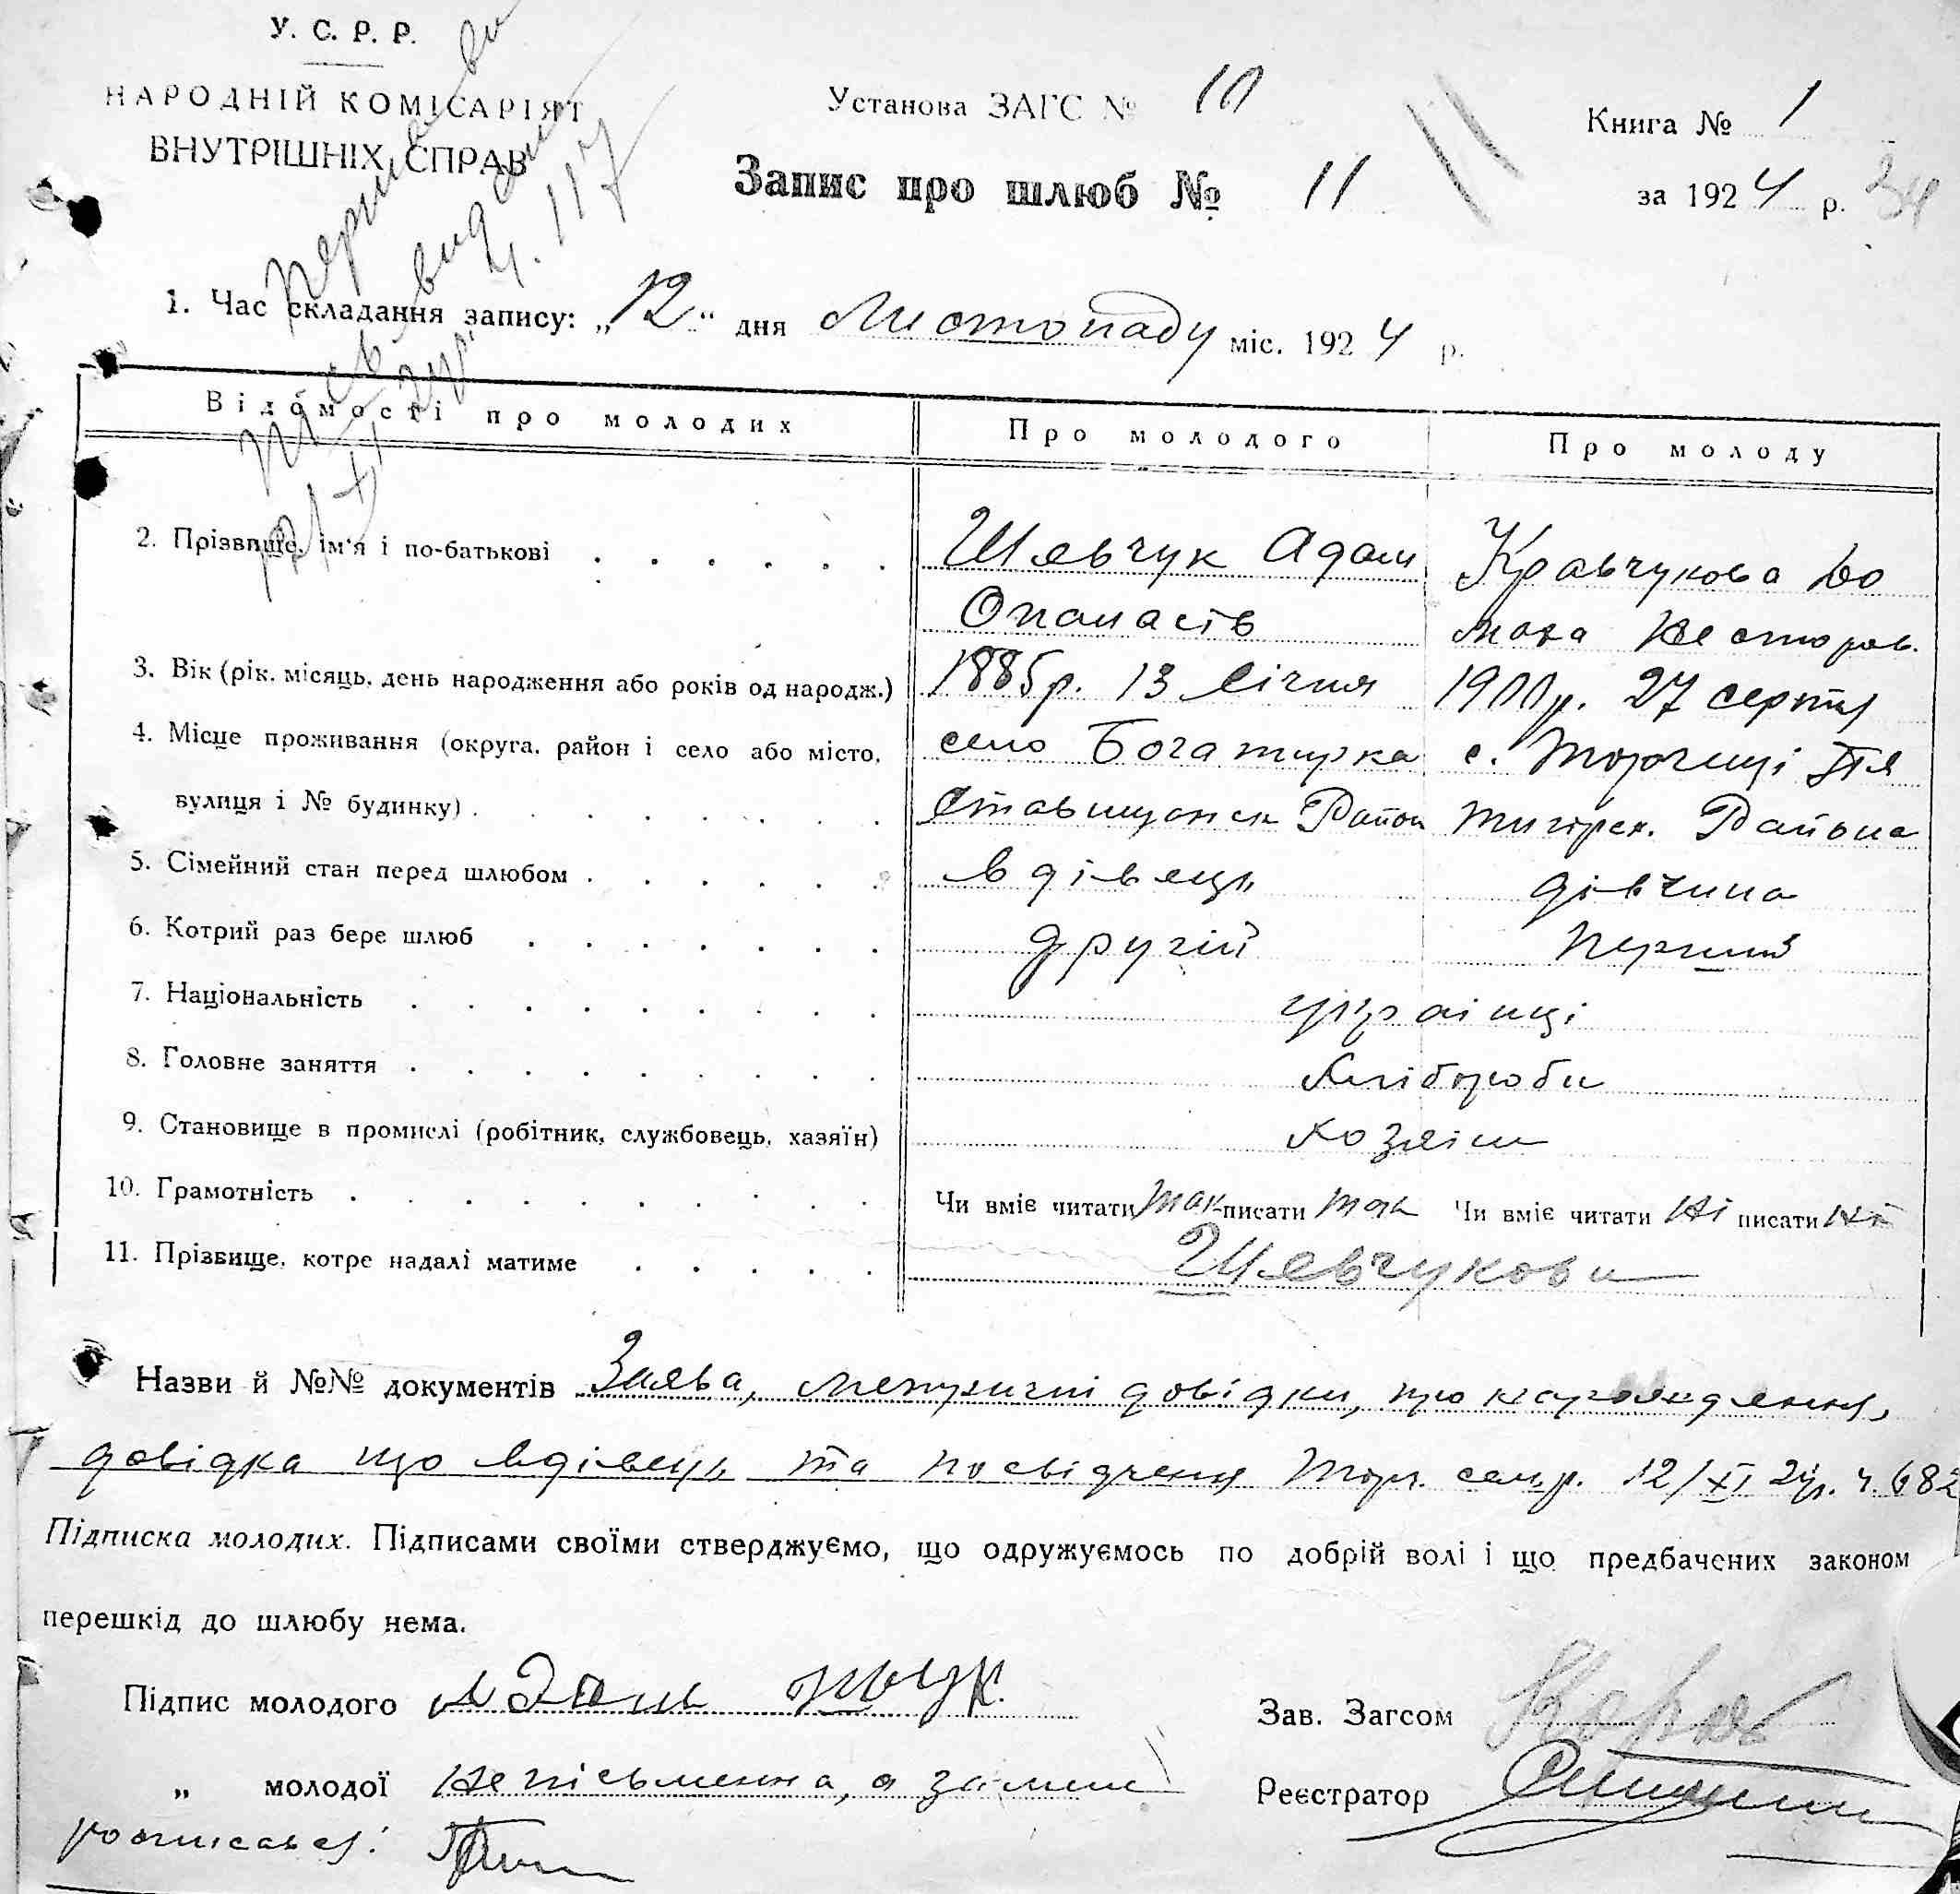 У. С. Р. Р.
НАРОДНІЙ КОМІСАРІЯТ
ВНУТРІШНІХ СПРАВ
Установа ЗАГС № 10
Книга № 1
Запис про шлюб № 11
за 1924 р. 34
ч. 117
1. Час складання запису: „12“ дня Листопаду міс. 1924 р.
Відомості про молодих Про молодого Про молоду
2. Прізвище, ім'я і по-батькові Шевчук Адам Кравчукова До
Опанасів маха Несторов.
3. Вік (рік, місяць, день народження або років од народж.) 1885р. 13 Січня 1900р. 27 серпня
4. Місце проживання (округа, район і село або місто, село Богатирка с. Торчиці Пя
вулиця і № будинку) Ставищанськ Район тигорск. Району
5. Сімейний стан перед шлюбом вдівець дівчина
6. Котрий раз бере шлюб другій перший
7. Національність українці
8. Головне заняття Хлібороби
9. Становище в промислі (робітник, службовець, хазяїн) хозяїни
10. Грамотність Чи вміє читати так писати так Чи вміє читати ні писати ні
11. Прізвище, котре надалі матиме Шевчукови
Назви й №№ документів Заява, довідки, про народження,
довідка що вдівець та посвідчення Торч. сель.р. 12/XI 24р. ч. 682
Підписка молодих. Підписами своїми стверджуємо, що одружуємось по добрій волі і що предбачених законом
перешкід до шлюбу нема.
Підпис молодого Адамь
Зав. Загсом
„ молодої неписьменна, а за мене
Реєстратор
росписався: